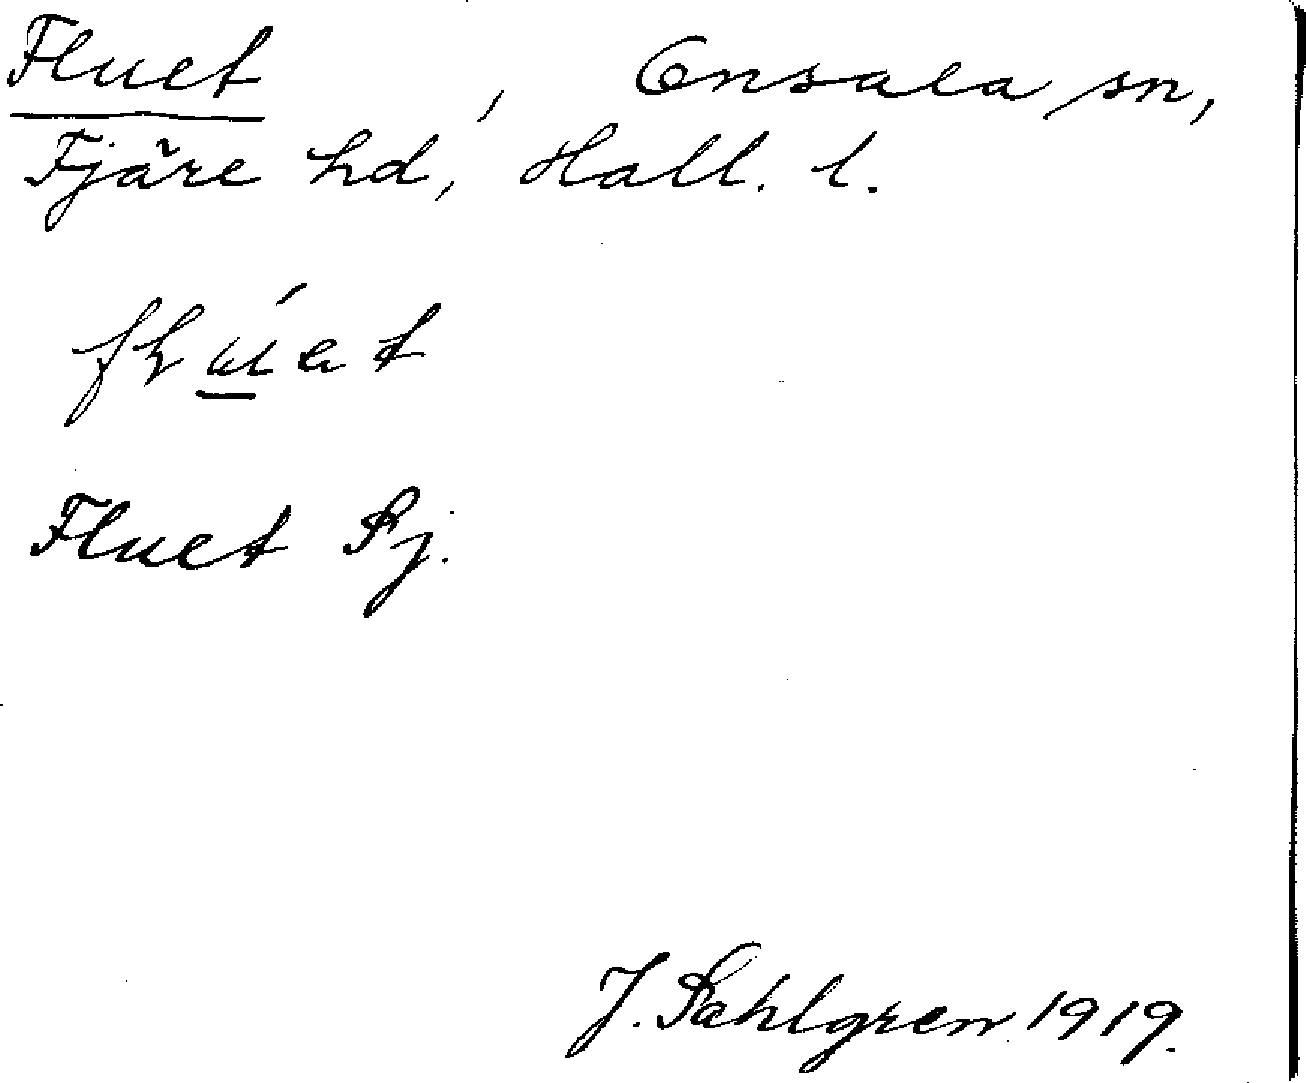 Fluet , Onsala sn,
Fjäre hd, Hall. l.
Fluet Sj.
J. Sahlgren 1919.